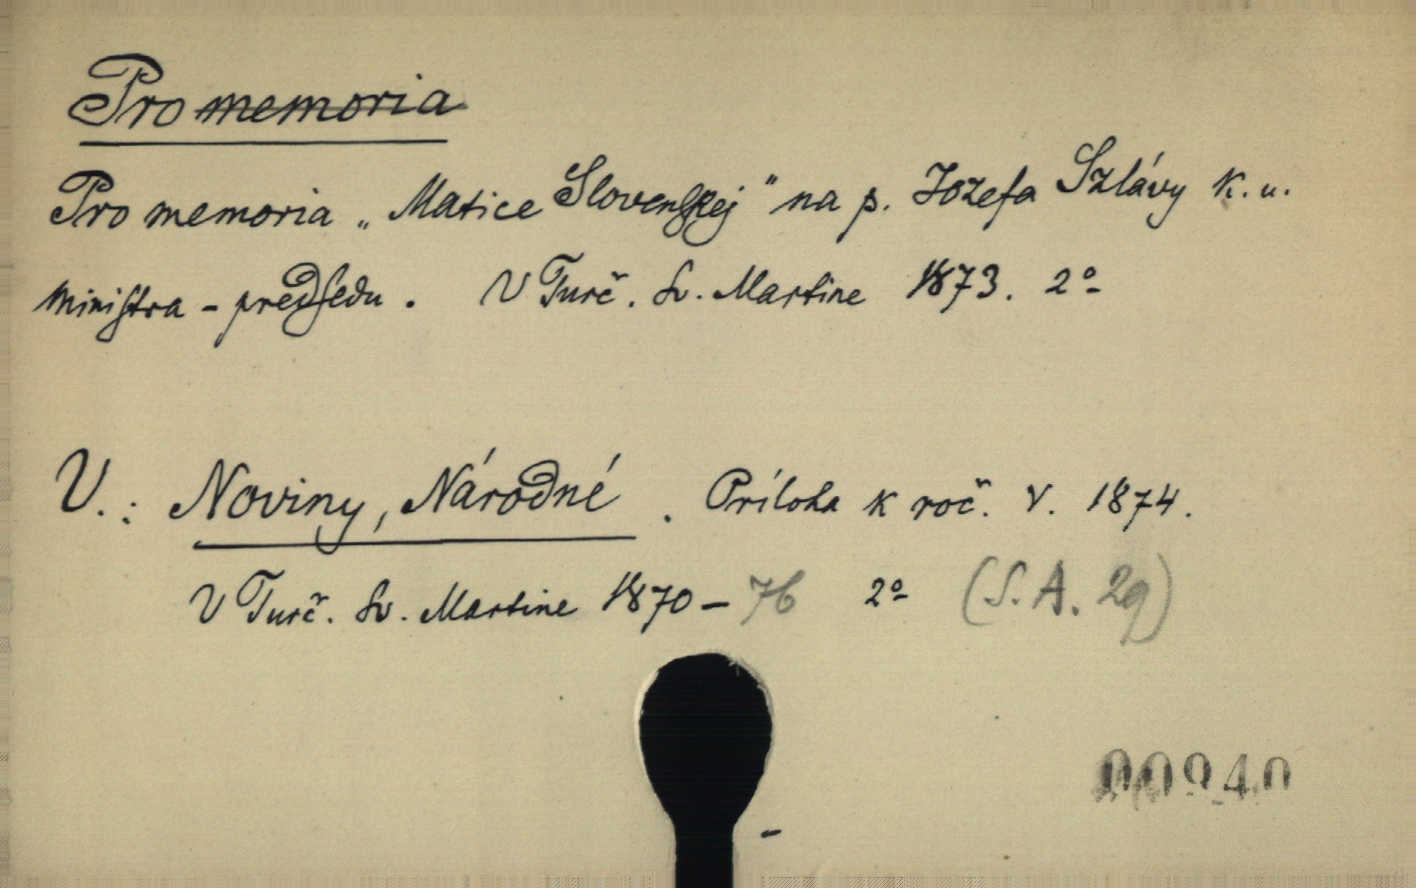 Pro memoria
Pro memoria „Matice Slovenskej" na p. Jozefa Szlávy k. u.
ministra-predsedu. V Turč. Sv. Martine 1873. 2º
V.: Noviny, Národné. Príloha k roč. V. 1874.
V Turč. Sv. Martine 1870-76 2º (S. A. 29)
00940